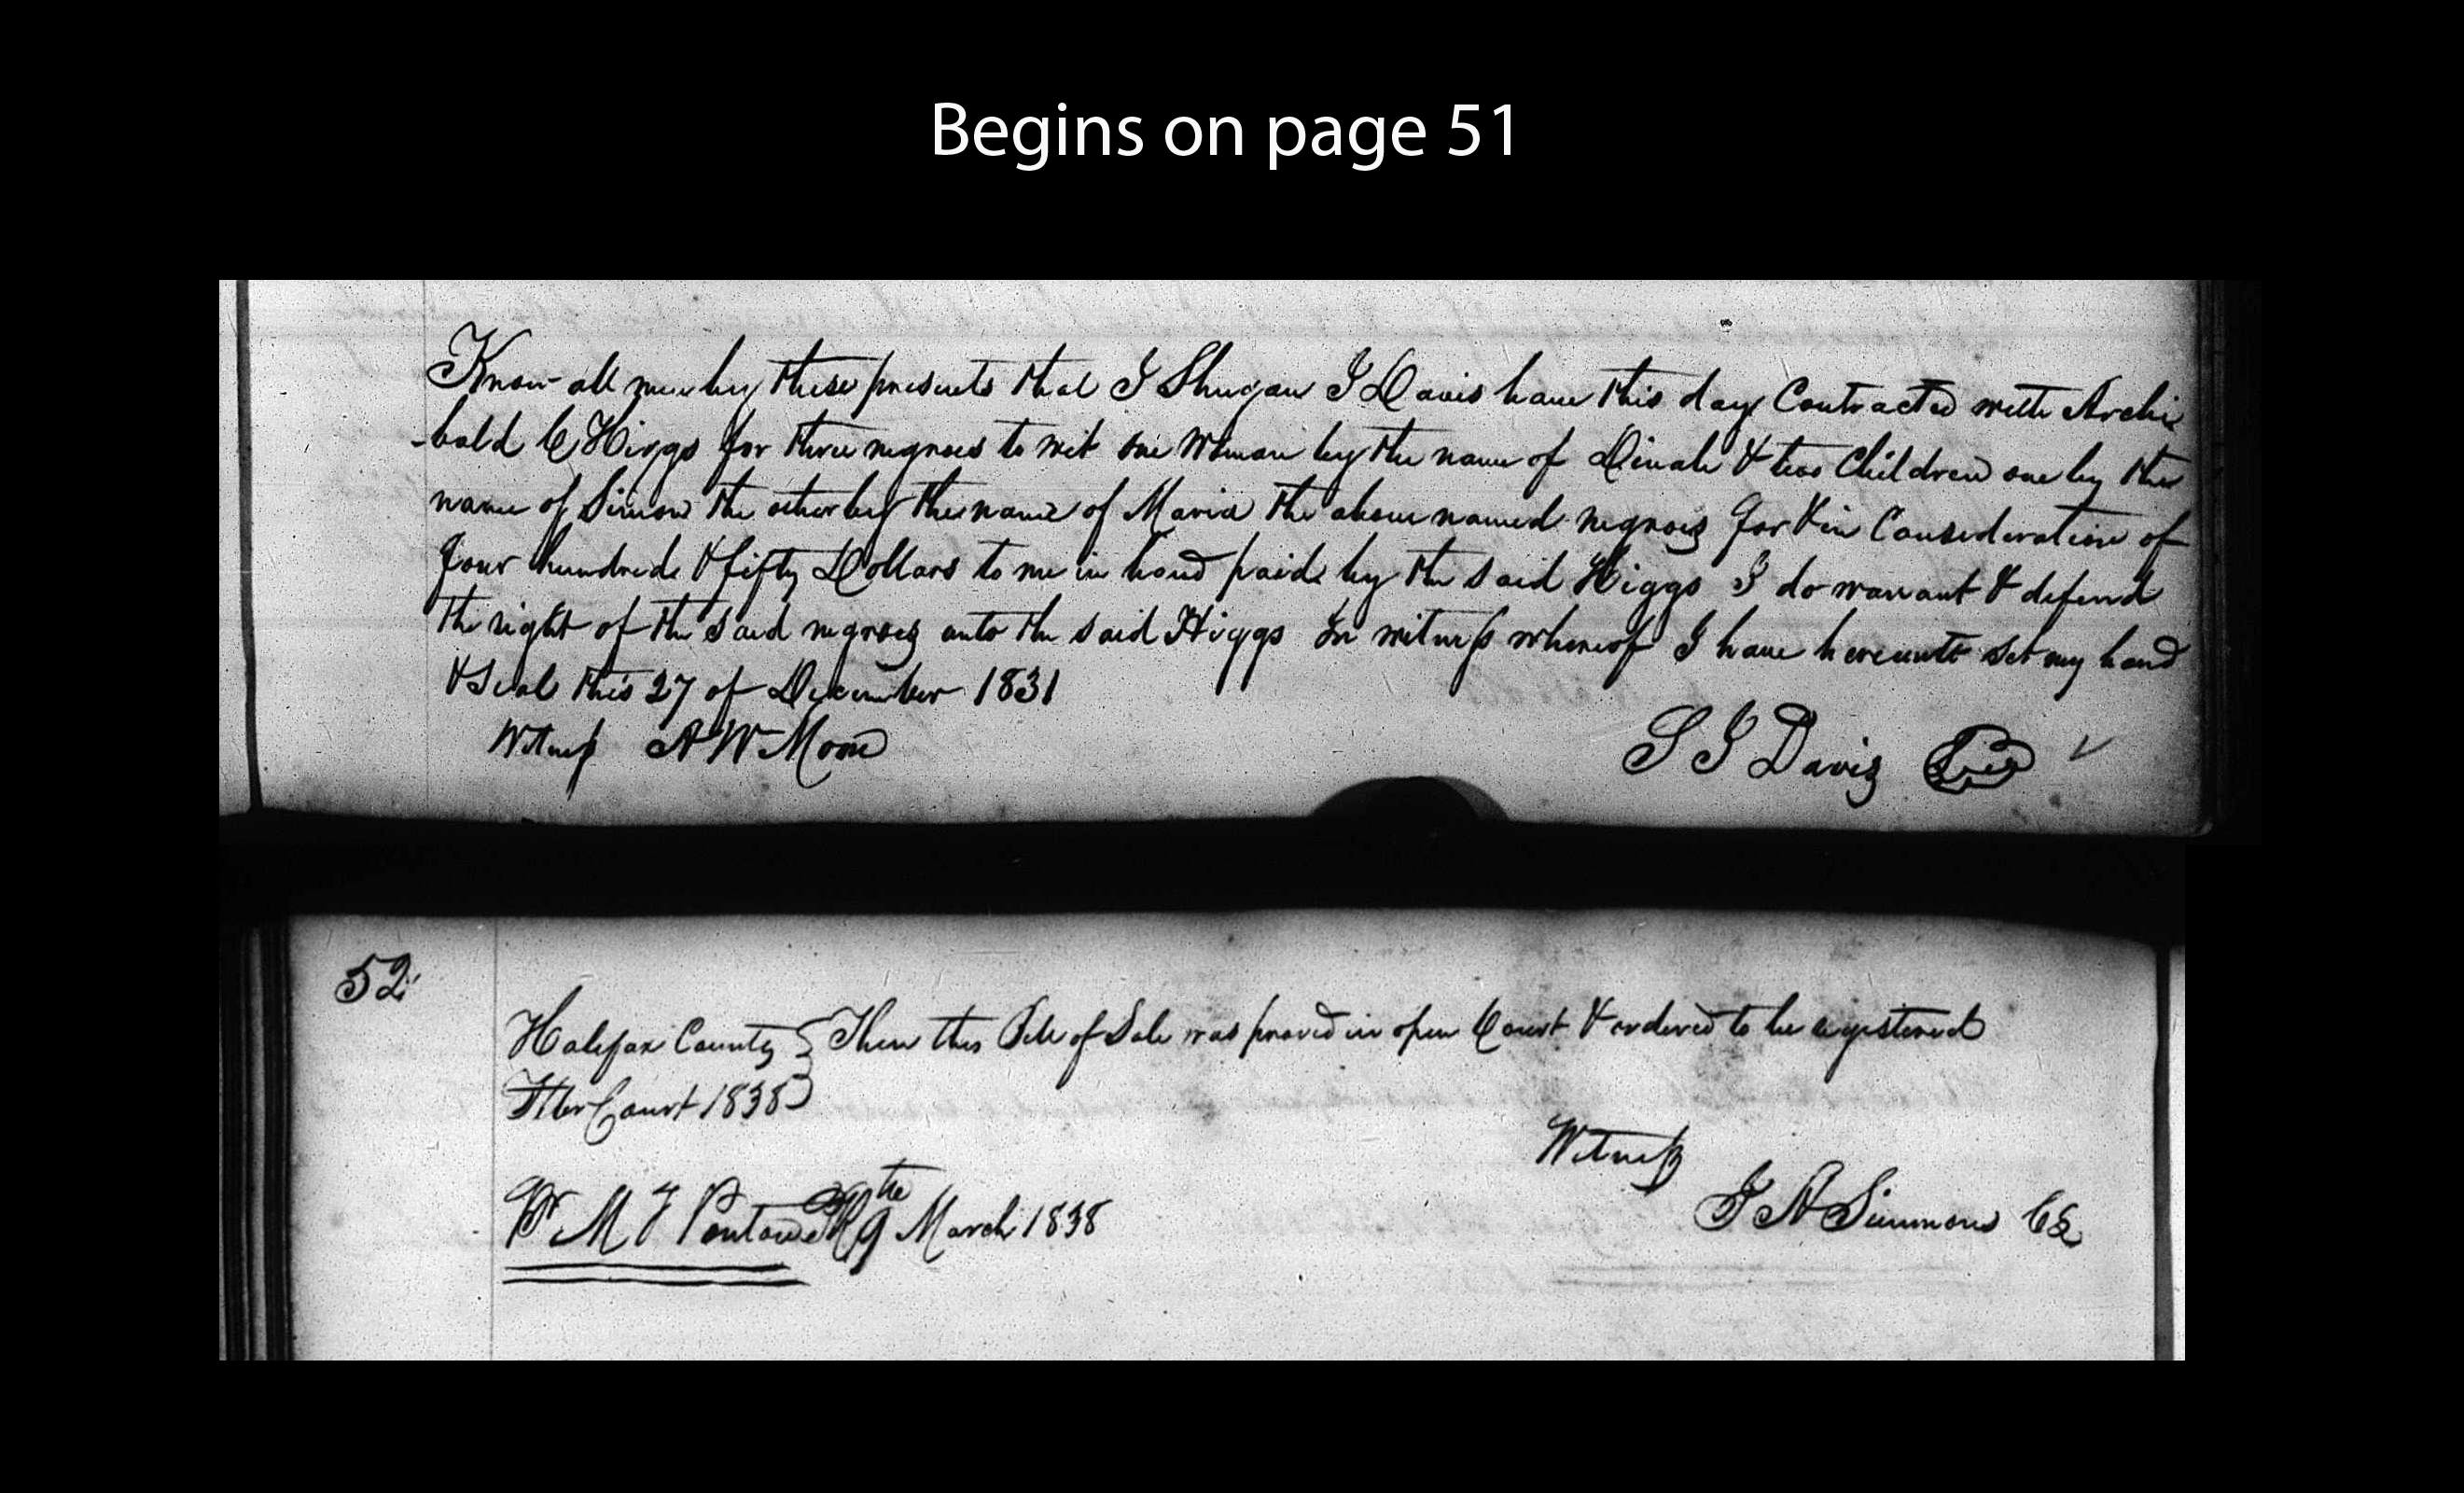 Begins on page 51
Know all men by these presents that I Shugan I Davis have this day Contracted with Archi
-bald C Higgs for three negroes to wit one Woman by the name of Dinah & two Children one by the
name of Simon the other by the name of Maria the above named negroes for & in Consideration of
four hundred & fifty Dollars to me in hand paid by the said Higgs I do warrant & defend
the right of the said negroes unto the said Higgs In witness whereof I have hereunto set my hand
& Seal this 27 of December 1831
Witness A W Moore
S I Davis Seal
52
Halifax County } Then this Bill of Sale was proved in open Court & ordered to be registered
Feb Court 1838 }
Witness
M J Ponton 9th March 1838
J H Simmons Clk